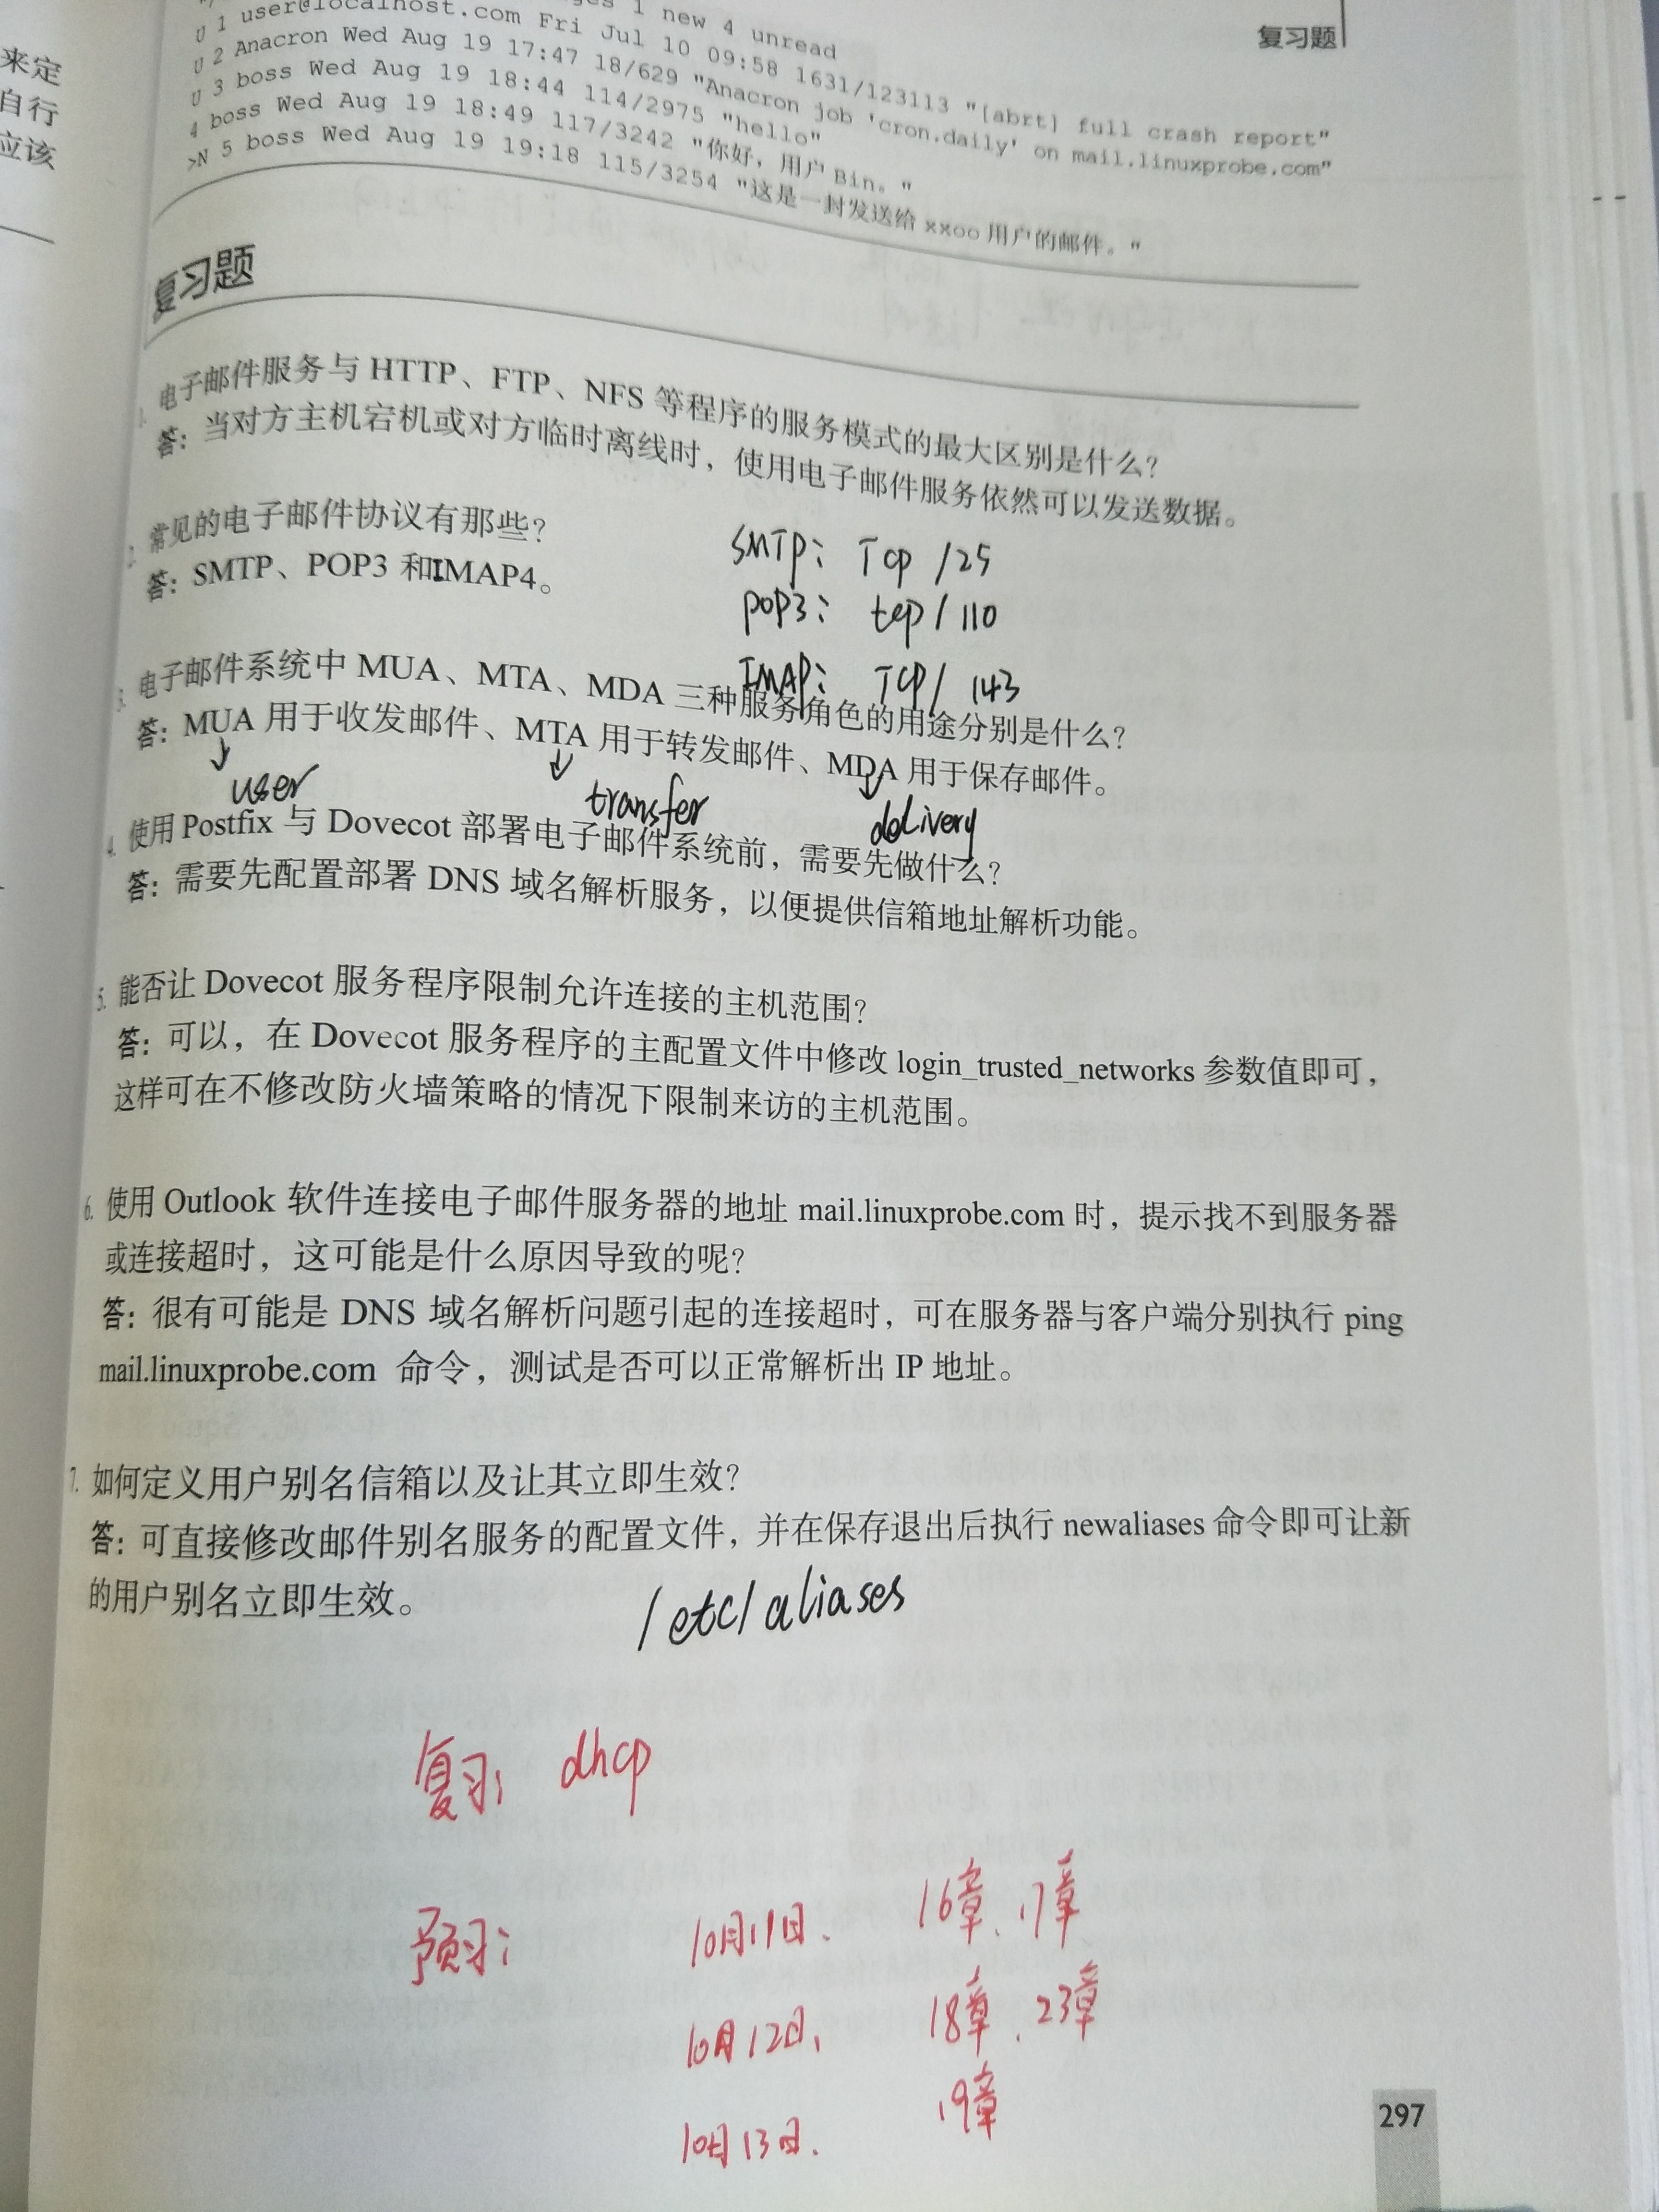 来定
自行
应该
复习题
1 new 4 unread
U 1 user@localhost.com Fri Jul 10 09:58 1631/123113 "[abrt] full crash report"
U 2 Anacron Wed Aug 19 17:47 18/629 "Anacron job 'cron.daily' on mail.linuxprobe.com"
U 3 boss Wed Aug 19 18:44 114/2975 "hello"
4 boss Wed Aug 19 18:49 117/3242 "你好，用户Bin。"
>N 5 boss Wed Aug 19 19:18 115/3254 "这是一封发送给 xxoo 用户的邮件。"
复习题
1. 电子邮件服务与 HTTP、FTP、NFS 等程序的服务模式的最大区别是什么？
答：当对方主机宕机或对方临时离线时，使用电子邮件服务依然可以发送数据。
2. 常见的电子邮件协议有那些？
答：SMTP、POP3 和IMAP4。
SMTP: Tcp /25
POP3: tcp / 110
IMAP: TCP/ 143
3. 电子邮件系统中 MUA、MTA、MDA 三种服务角色的用途分别是什么？
答：MUA 用于收发邮件、MTA 用于转发邮件、MDA 用于保存邮件。
user transfer delivery
4. 使用 Postfix 与 Dovecot 部署电子邮件系统前，需要先做什么？
答：需要先配置部署 DNS 域名解析服务，以便提供信箱地址解析功能。
5. 能否让 Dovecot 服务程序限制允许连接的主机范围？
答：可以，在 Dovecot 服务程序的主配置文件中修改 login_trusted_networks 参数值即可，
这样可在不修改防火墙策略的情况下限制来访的主机范围。
6. 使用 Outlook 软件连接电子邮件服务器的地址 mail.linuxprobe.com 时，提示找不到服务器
或连接超时，这可能是什么原因导致的呢？
答：很有可能是 DNS 域名解析问题引起的连接超时，可在服务器与客户端分别执行 ping
mail.linuxprobe.com 命令，测试是否可以正常解析出 IP 地址。
7. 如何定义用户别名信箱以及让其立即生效？
答：可直接修改邮件别名服务的配置文件，并在保存退出后执行 newaliases 命令即可让新
的用户别名立即生效。
/etc/aliases
复习: dhcp
预习: 10月11日. 16章、17章
10月12日, 18章、23章
19章
10月13日.
297